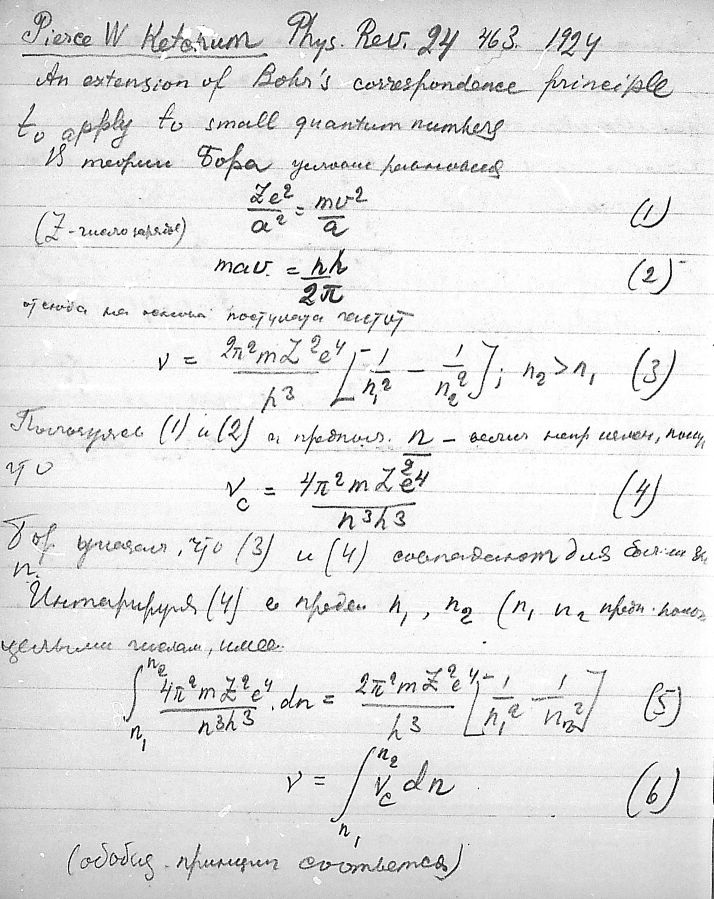 Pierce W Ketchum Phys. Rev. 24 463. 1924
An extension of Bohr's correspondence principle
to apply to small quantum numbers
В теории Бора условие равновесия
Ze²/a² = mv²/a (1)
(Z - число заряда)
mav. = nh/2π (2)
отсюда на основа постулата частот
ν = 2π²mZ²e⁴/h³ [1/n₁² - 1/n₂²]; n₂ > n₁ (3)
Пользуясь (1) и (2) и предпол. n -
что
ν_c = 4π²mZ²e⁴/n³h³ (4)
Бор указал, что (3) и (4) совпадают для
n.
Интегрируя (4) в предел n₁, n₂ (n₁ n₂
целыми числам, имее
∫_{n₁}^{n₂} 4π²mZ²e⁴/n³h³ . dn = 2π²mZ²e⁴/h³ [1/n₁² - 1/n₂²] (5)
ν = ∫_{n₁}^{n₂} ν_c dn (6)
(обобщ. принцип соответся)